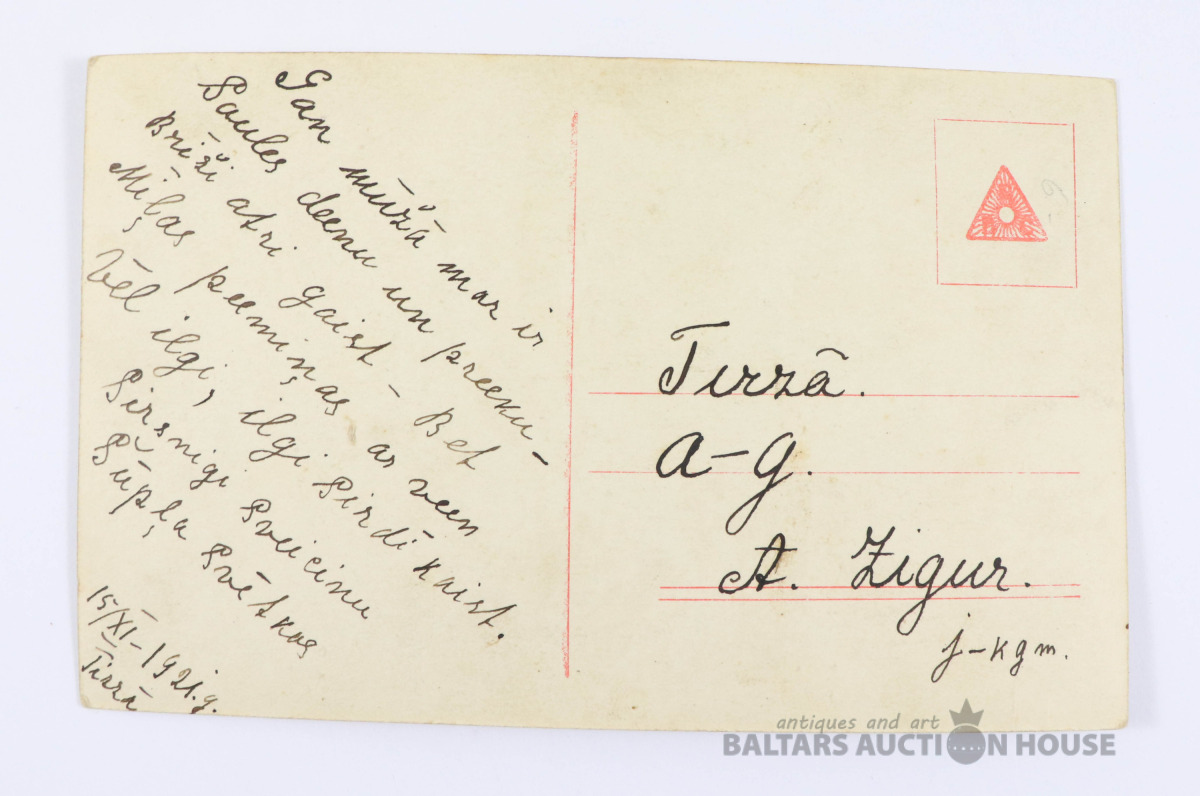 Gan mūžā mar ir
Saules deenu un preeku –
Brīži atri gaist – Bet
Miļas peemiņas as veen
Vēl ilgi, ilgi Sirdī kaist.
Sirsnigi Sveicinu
Svētkos
15/XI – 1921.g.
Tirzā
Tirzā.
A–g.
A. Zigur.
j–kgm.
antiques and art
BALTARS AUCTION HOUSE